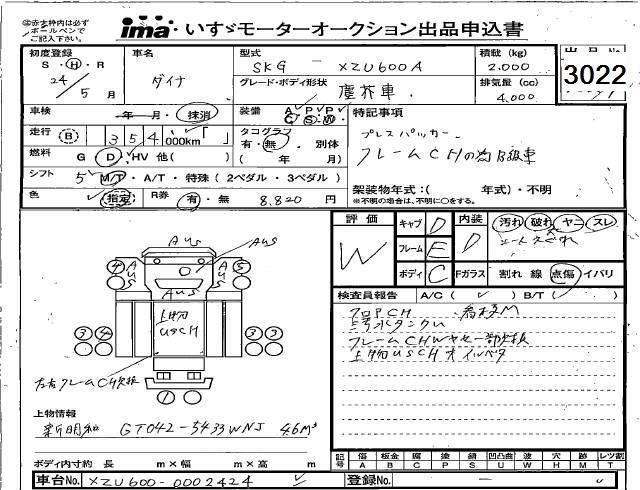 赤太枠内は必ず
ボールペンで
ご記入下さい。
ima・いすゞモーターオークション出品申込書
初度登録
S・H・R
24/5月
車名
ダイナ
型式
SKG-XZU600A
グレード・ボディ形状
塵芥車.
積載 (kg)
2.000
排気量 (cc)
4.000
3022
車検 年・月・抹消
装備 A・P・P・
C・S・W・
特記事項
プレスパッカー
フレームCHの為B級車
走行 B 354,000km
タコグラフ
有・無・別体
( 年 月)
燃料 G D・HV 他( )
シフト 5 MT・A/T・特殊(2ペダル・3ペダル)
架装物年式:( 年式)・不明
※不明の場合は、不明に○をする。
色 指定
R券 有・無 8,820 円
評価
W
キャブ D
フレーム E
ボディ C
内装 D
Fガラス
汚れ 破れ ヤニ スレ
割れ 線 点傷 イバリ
検査員報告 A/C( ) B/T( )
上物USCH
左右フレームCH欠損
Aus
Aus
Aus
Aus
Aus
4
5
3 4
3 3
1
上物情報
新明和 GT042-5433WNJ 4.6m³
ボディ内寸約 長 m×幅 m×高 m
記号
傷 A
板金 B
腐 C
塗 P
錆 S
凹凸凹 U
波 W
穴 H
跡 M
レツ割 T
車台No. XZU600-0002424
登録No.